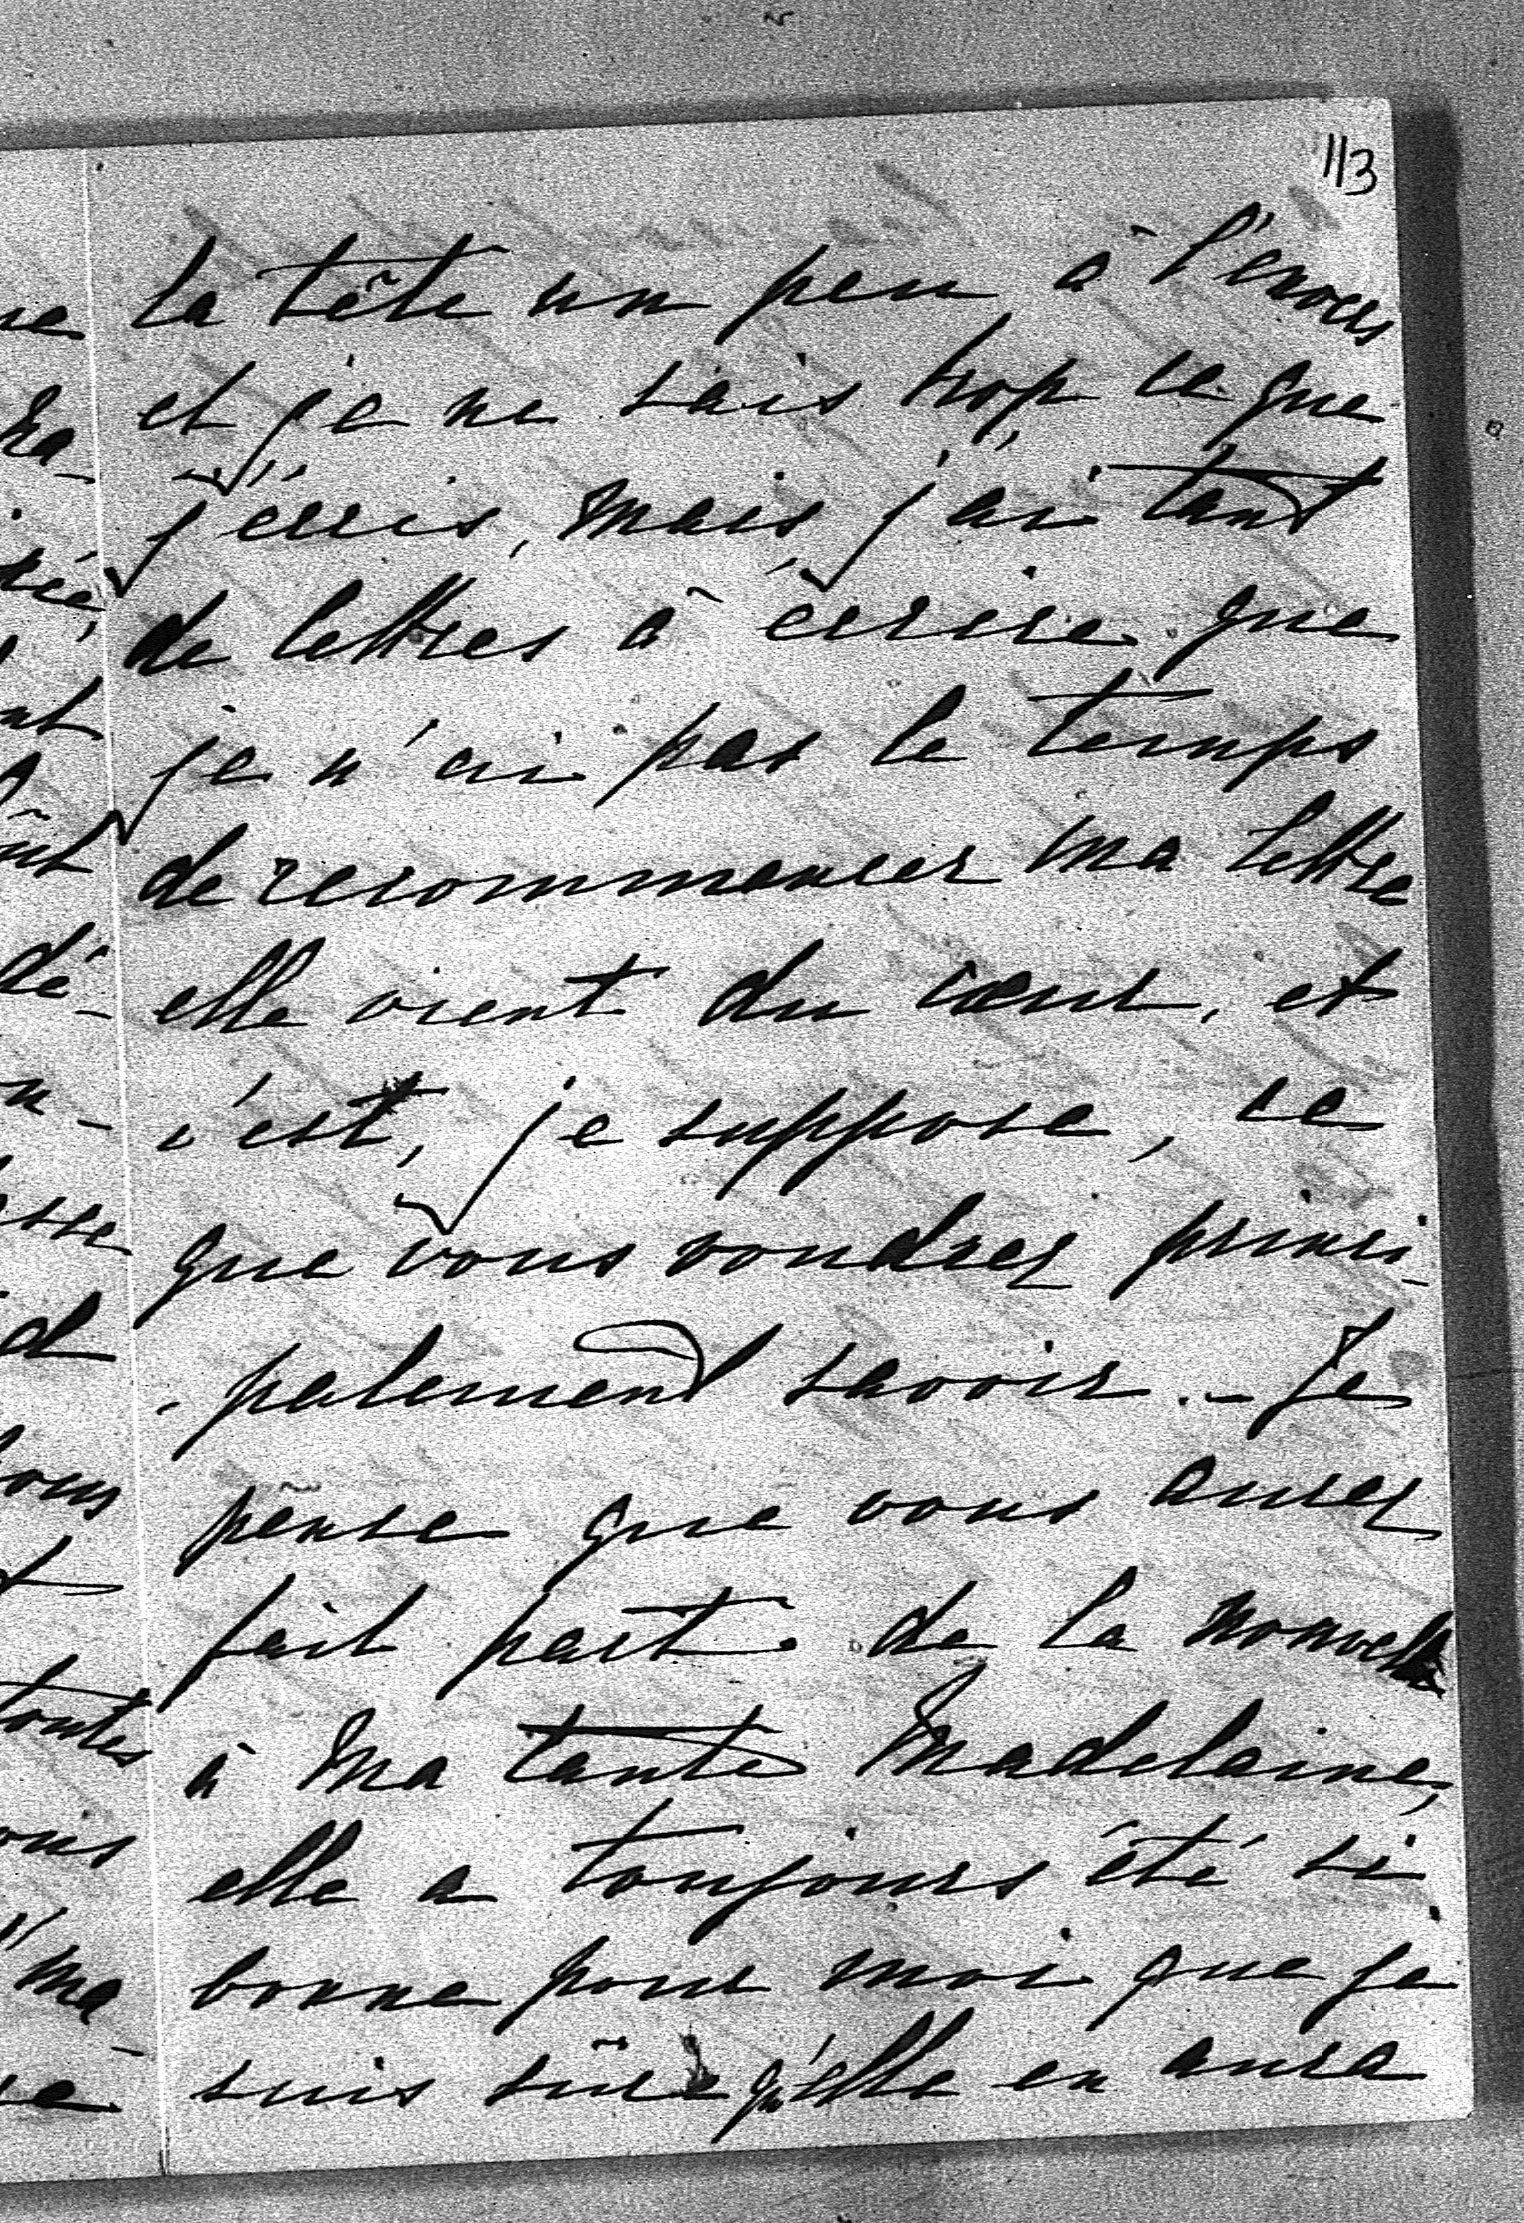 113
la tête un peu à l'envers
et je ne sais trop ce que
j'écris, mais j'ai tant
de lettres à écrire que
je n'ai pas le temps
de recommencer ma lettre
elle vient du cœur, et
c'est, je suppose, ce
que vous voudrez princi-
-palement savoir. - Je
pense que vous aurez
fait part de la nouvelle
à ma tante Madelaine,
elle a toujours été si
bonne pour moi que je
suis sûre qu'elle en aura